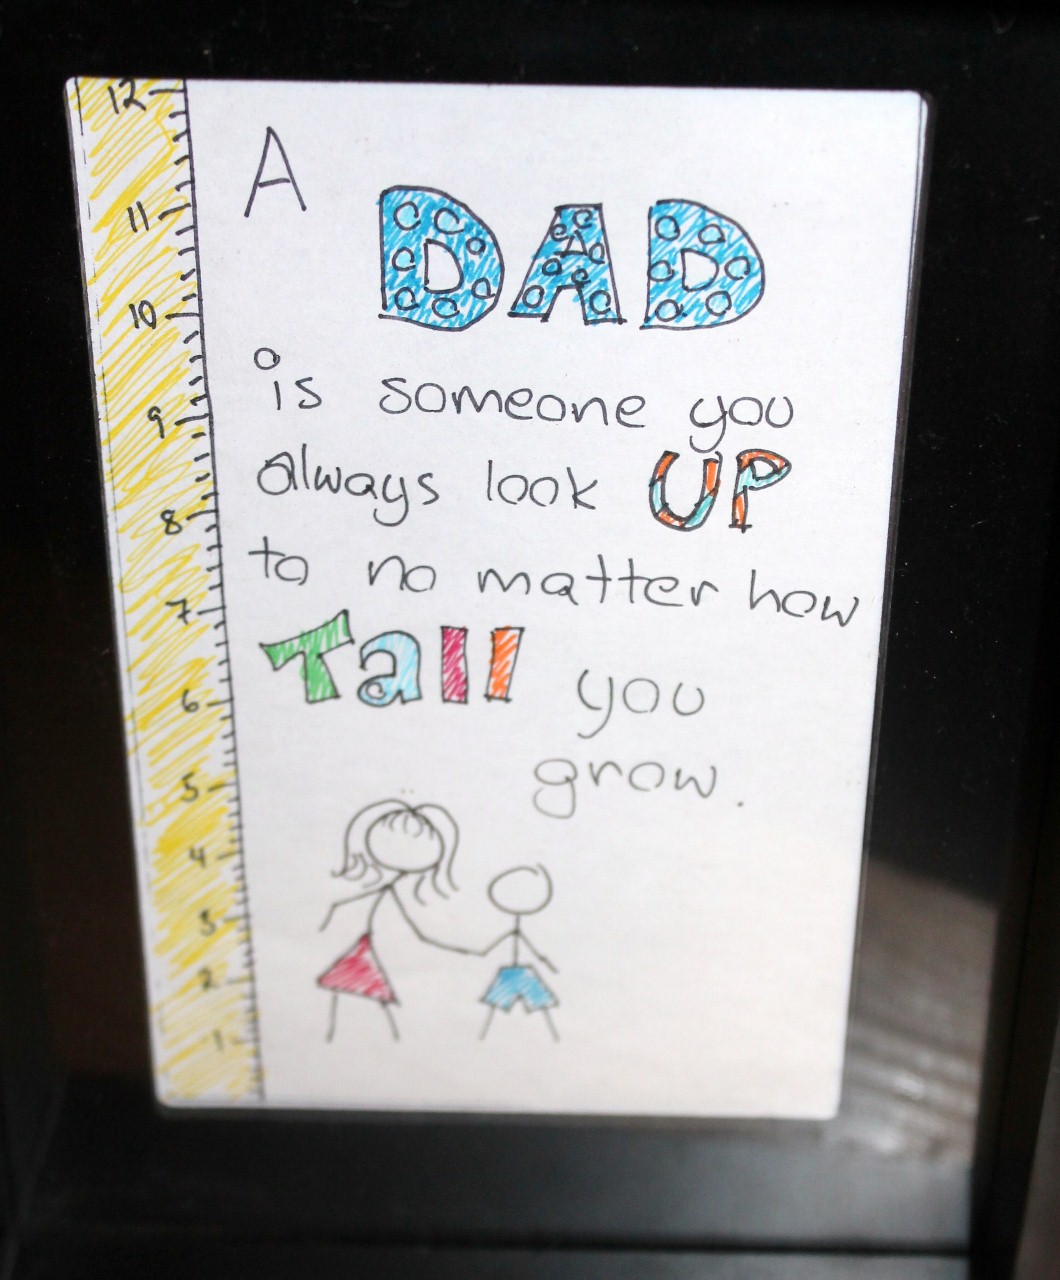 12
11
10
9
8
7
6
5
4
3
2
1
A
DAD
is someone you
always look UP
to no matter how
Tall you
grow.